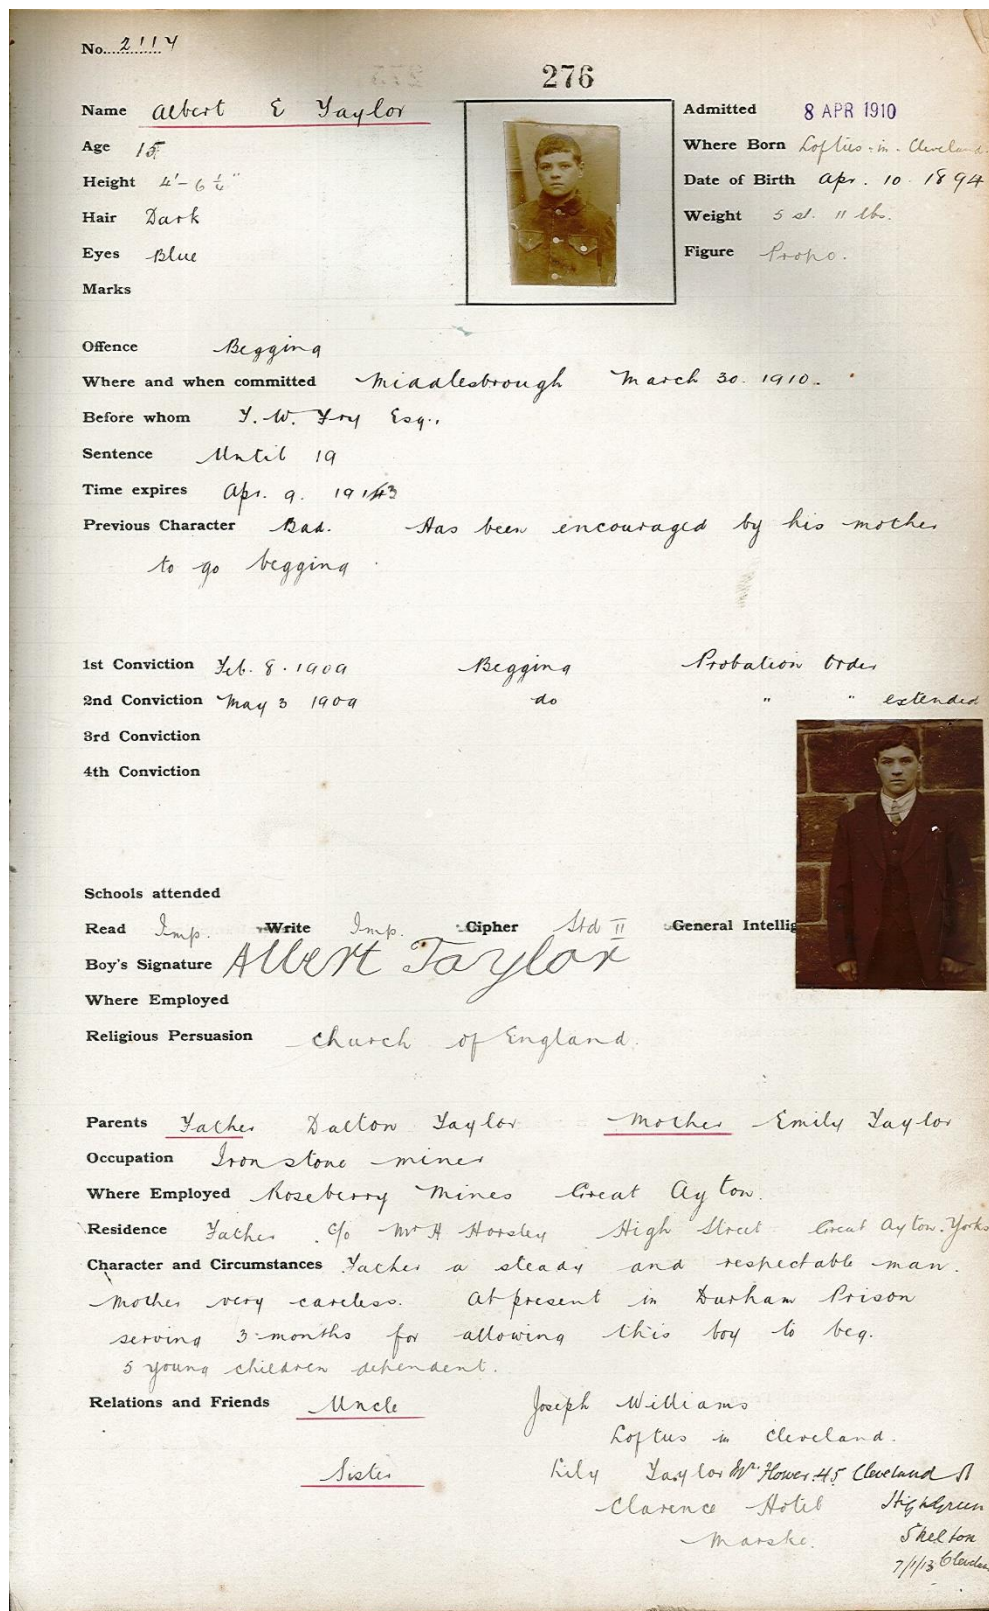 No. 2114
276
Name Albert E Taylor
Admitted 8 APR 1910
Age 15
Where Born Loftus-in-Cleveland
Height 4'-6 1/4"
Date of Birth Apr. 10 1894
Hair Dark
Weight 5 st. 11 lbs.
Eyes Blue
Figure Propo.
Marks
Offence Begging
Where and when committed Middlesbrough March 30. 1910.
Before whom T. W. Fry Esq.,
Sentence Until 19
Time expires Apr. 9. 1913
Previous Character Bad. Has been encouraged by his mother
to go begging
1st Conviction Feb. 8. 1909 Begging Probation Order
2nd Conviction May 3 1909 do " " extended
3rd Conviction
4th Conviction
Schools attended
Read Imp. Write Imp. Cipher Std II General Intellig
Boy's Signature Albert Taylor
Where Employed
Religious Persuasion Church of England.
Parents Father Dalton Taylor Mother Emily Taylor
Occupation Ironstone miner
Where Employed Roseberry Mines Great Ayton.
Residence Father c/o Mr H Horsley High Street Great Ayton. Yorks
Character and Circumstances Father a steady and respectable man.
Mother very careless. At present in Durham Prison
serving 3 months for allowing this boy to beg.
5 young children dependent.
Relations and Friends Uncle Joseph Williams
Loftus in Cleveland.
Sister Lily Taylor Mr. Flower. 45 Cleveland St
Clarence Hotel High Green
Marske. Skelton
7/1/13 Clevelan